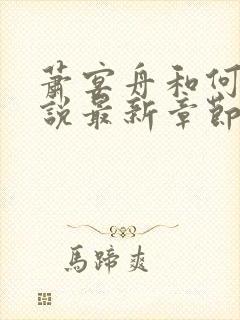 蕭宴舟和何
說最新章節
馬蹄爽